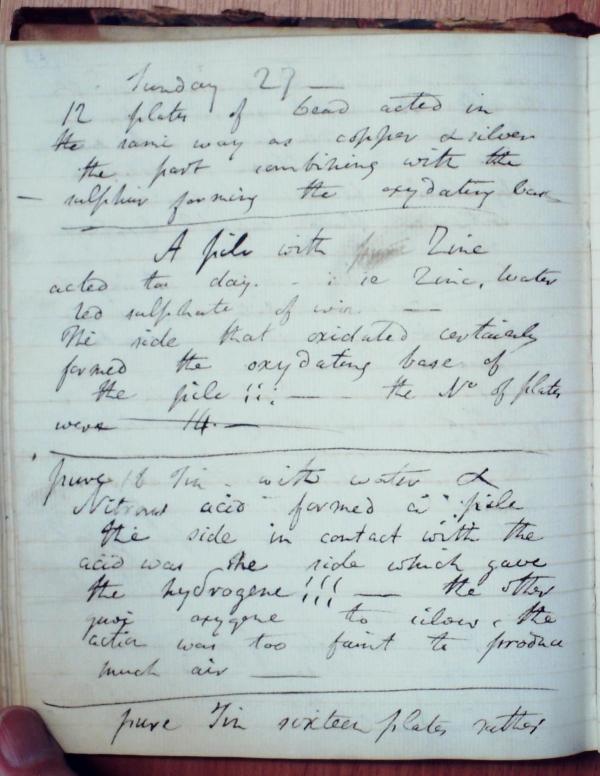 Sunday 27 —
12 plates of Lead acted in
the same way as copper & silver
the part combining with the
— sulphur forming the oxydating base
A pile with Zinc
acted to day. - i ie Zinc, Water
red sulphate of iron. —
The side that oxidated certainly
formed the oxydating base of
the pile !!. — the No of plates
were 14. —
pure 16 Tin - with water &
Nitrous acid formed a pile
the side in contact with the
acid was the side which gave
the hydrogene !!! — the other
oxygene to silver, the
action was too faint to produce
much air —
pure Tin sixteen plates rather